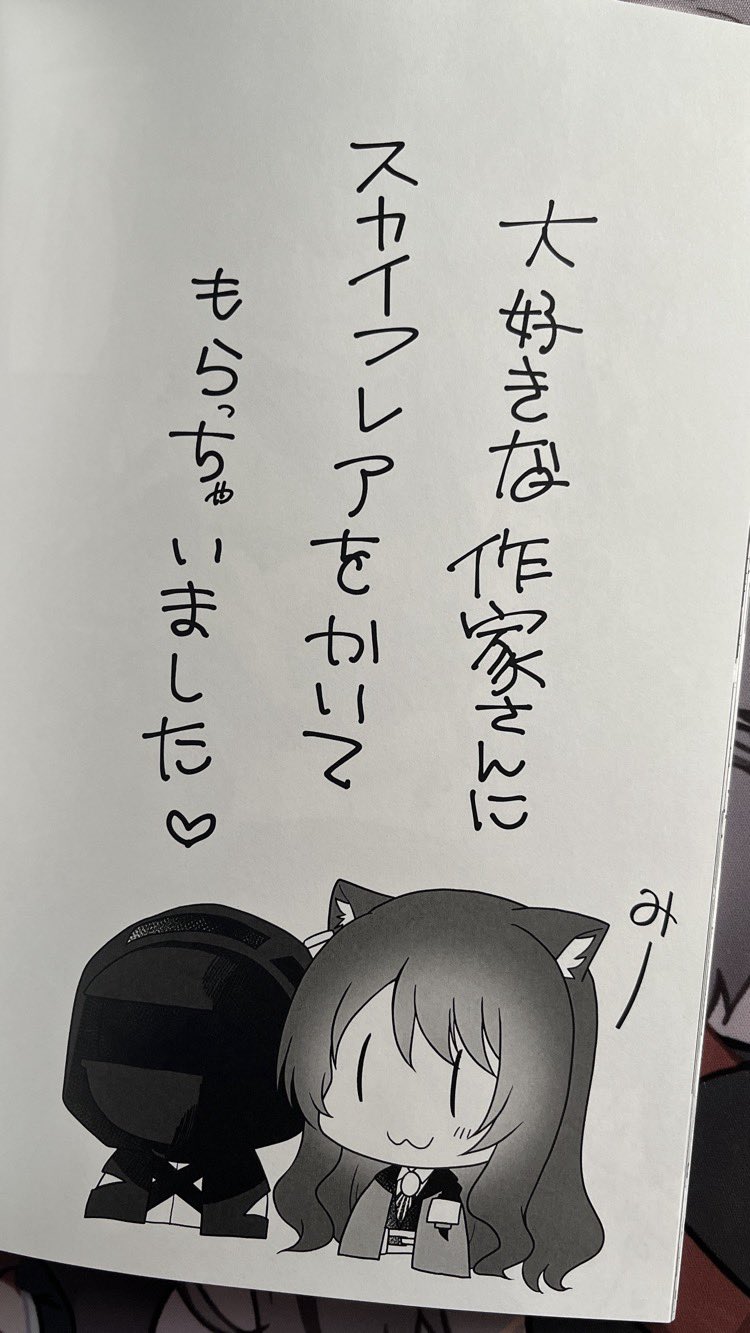 大好きな作家さんに
スカイフレアをかいて
もらっちゃいました♡
みー